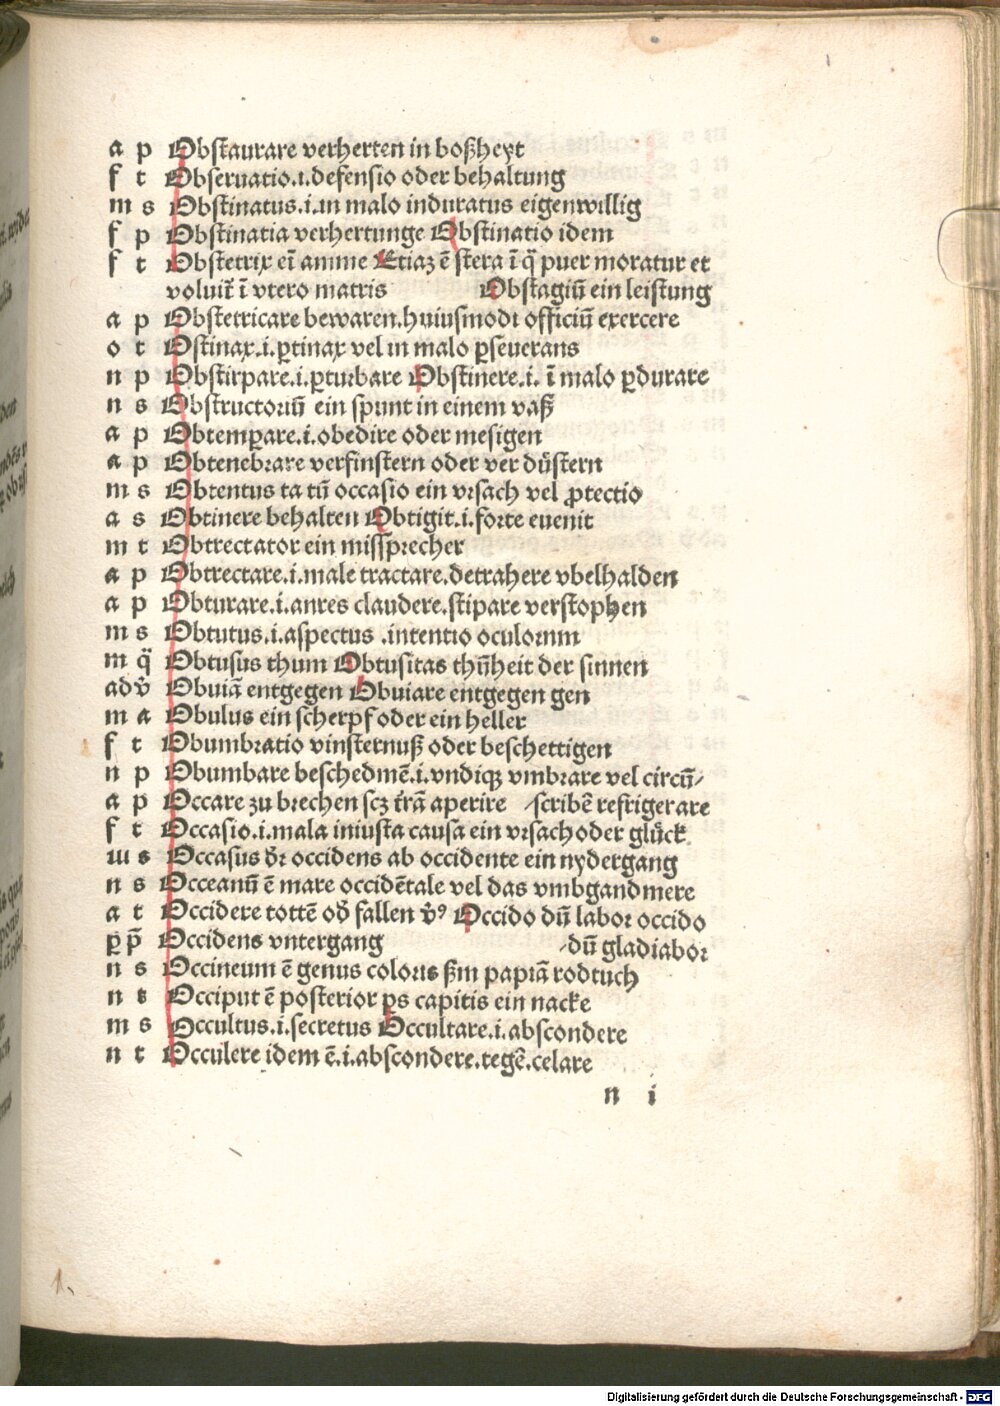 a p Obstaurare verherten in boßheyt
f t Obseruatio.i.defensio oder behaltung
m s Obstinatus.i.in malo induratus eigenwillig
f p Obstinatia verhertunge Obstinatio idem
f t Obstetrix eī amme Etiaꝫ ē stera ī q̄ puer moratur et
voluit̄ ī vtero matris Obstagiū ein leistung
a p Obstetricare bewaren.huiusmodi officiū exercere
o t Ostinax.i.ꝑtinax vel in malo ꝑseuerans
n p Obstirpare.i.ꝑturbare Obstinere.i. ī malo ꝑdurare
n s Obstructoriū ein spunt in einem vaß
a p Obtemꝑare.i.obedire oder mesigen
a p Obtenebrare verfinstern oder ver düstern
m s Obtentus ta tū occasio ein vrsach vel ꝓtectio
a s Obtinere behalten Obtigit.i.forte euenit
m t Obtrectator ein missprecher
a p Obtrectare.i.male tractare.detrahere vbelhalden
a p Obturare.i.anres claudere.stipare verstophen
m s Obtutus.i.aspectus .intentio oculornm
m q̄ Obtusus thum Obtusitas thūheit der sinnen
adv̄ Obuiā entgegen Obuiare entgegen gen
m a Obulus ein scherpf oder ein heller
f t Obumbratio vinsternuß oder beschettigen
n p Obumbare beschedmē.i.vndiqꝫ vmbrare vel circū/
a p Occare zu brechen scꝫ t̄rā aperire /scribē refrigerare
f t Occasio.i.mala iniusta causa ein vrsach oder glück
m s Occasus d̄r occidens ab occidente ein nydergang
n s Occeanū ē mare occidētale vel das vmbgandmere
a t Occidere tottē od̄ fallen v̄ꝰ Occido dū labor occido
ꝑ p̄ Occidens vntergang /dū gladiabor
n s Occineum ē genus coloris ẜm papiā rodtuch
n s Occiput ē posterior ꝑs capitis ein nacke
m s Occultus.i.secretus Occultare.i.abscondere
n t Occulere idem ē.i.abscondere.tegē.celare
n i
1.
Digitalisierung gefördert durch die Deutsche Forschungsgemeinschaft - DFG